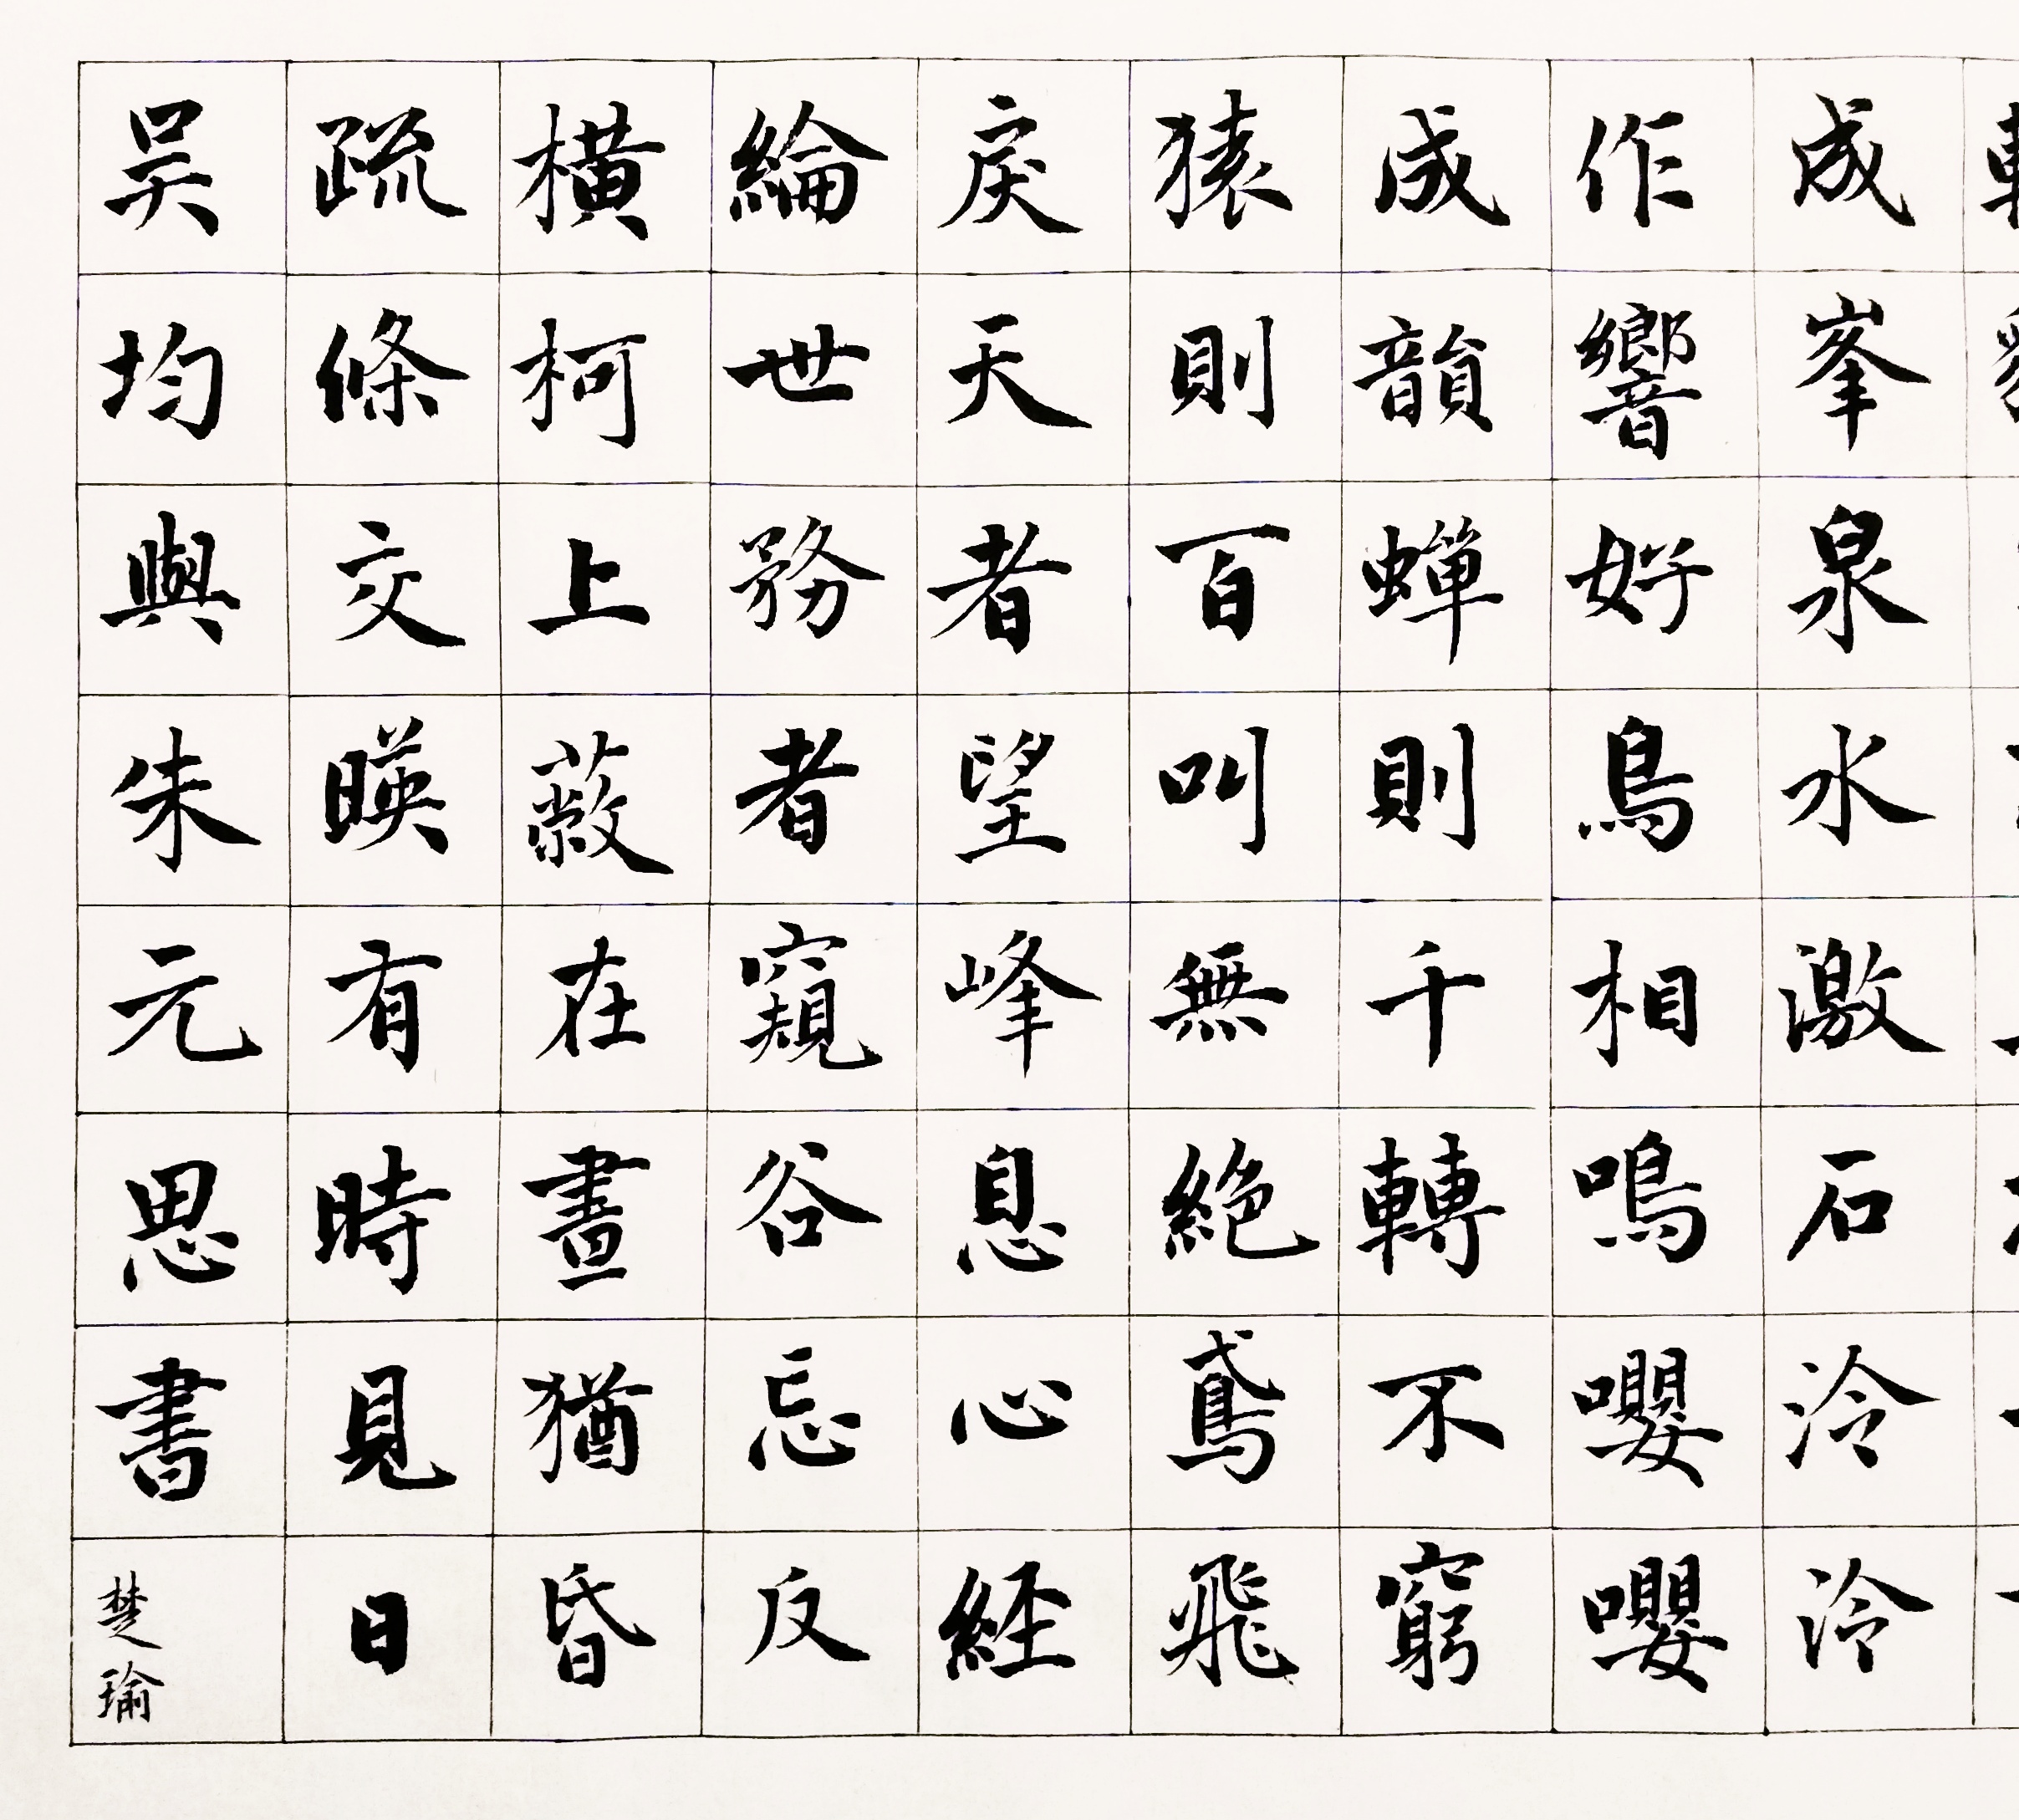 成峯泉水激石泠泠
作響好鳥相鳴嚶嚶
成韻蟬則千轉不窮
猿則百叫無絕鳶飛
戾天者望峰息心経
綸世務者窺谷忘反
橫柯上蔽在晝猶昏
疏條交暎有時見日
吳均與朱元思書
楚瑜